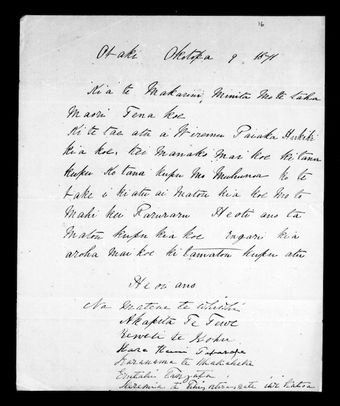 16
Otaki Oketopa 9 1871
Kia te Makarini, Minita mo te taha
Maori Tena koe
Ki te tae atu a Wiremu Paiaka
kia koe, kei manako mai koe ki tana
kupu Ko tana kupu mo Muhunoa ko te
take i kiatu ai matou kia koe mo te
mahi kei Raruraru Heoti ano ta
Matou kupu kia koe engari kia
aroha mai koe ki ta matou kupu atu
Heoi ano
Na Matene te Whiwhi
Akapita Te Tewe
te
Hara
te Whakaheke
te